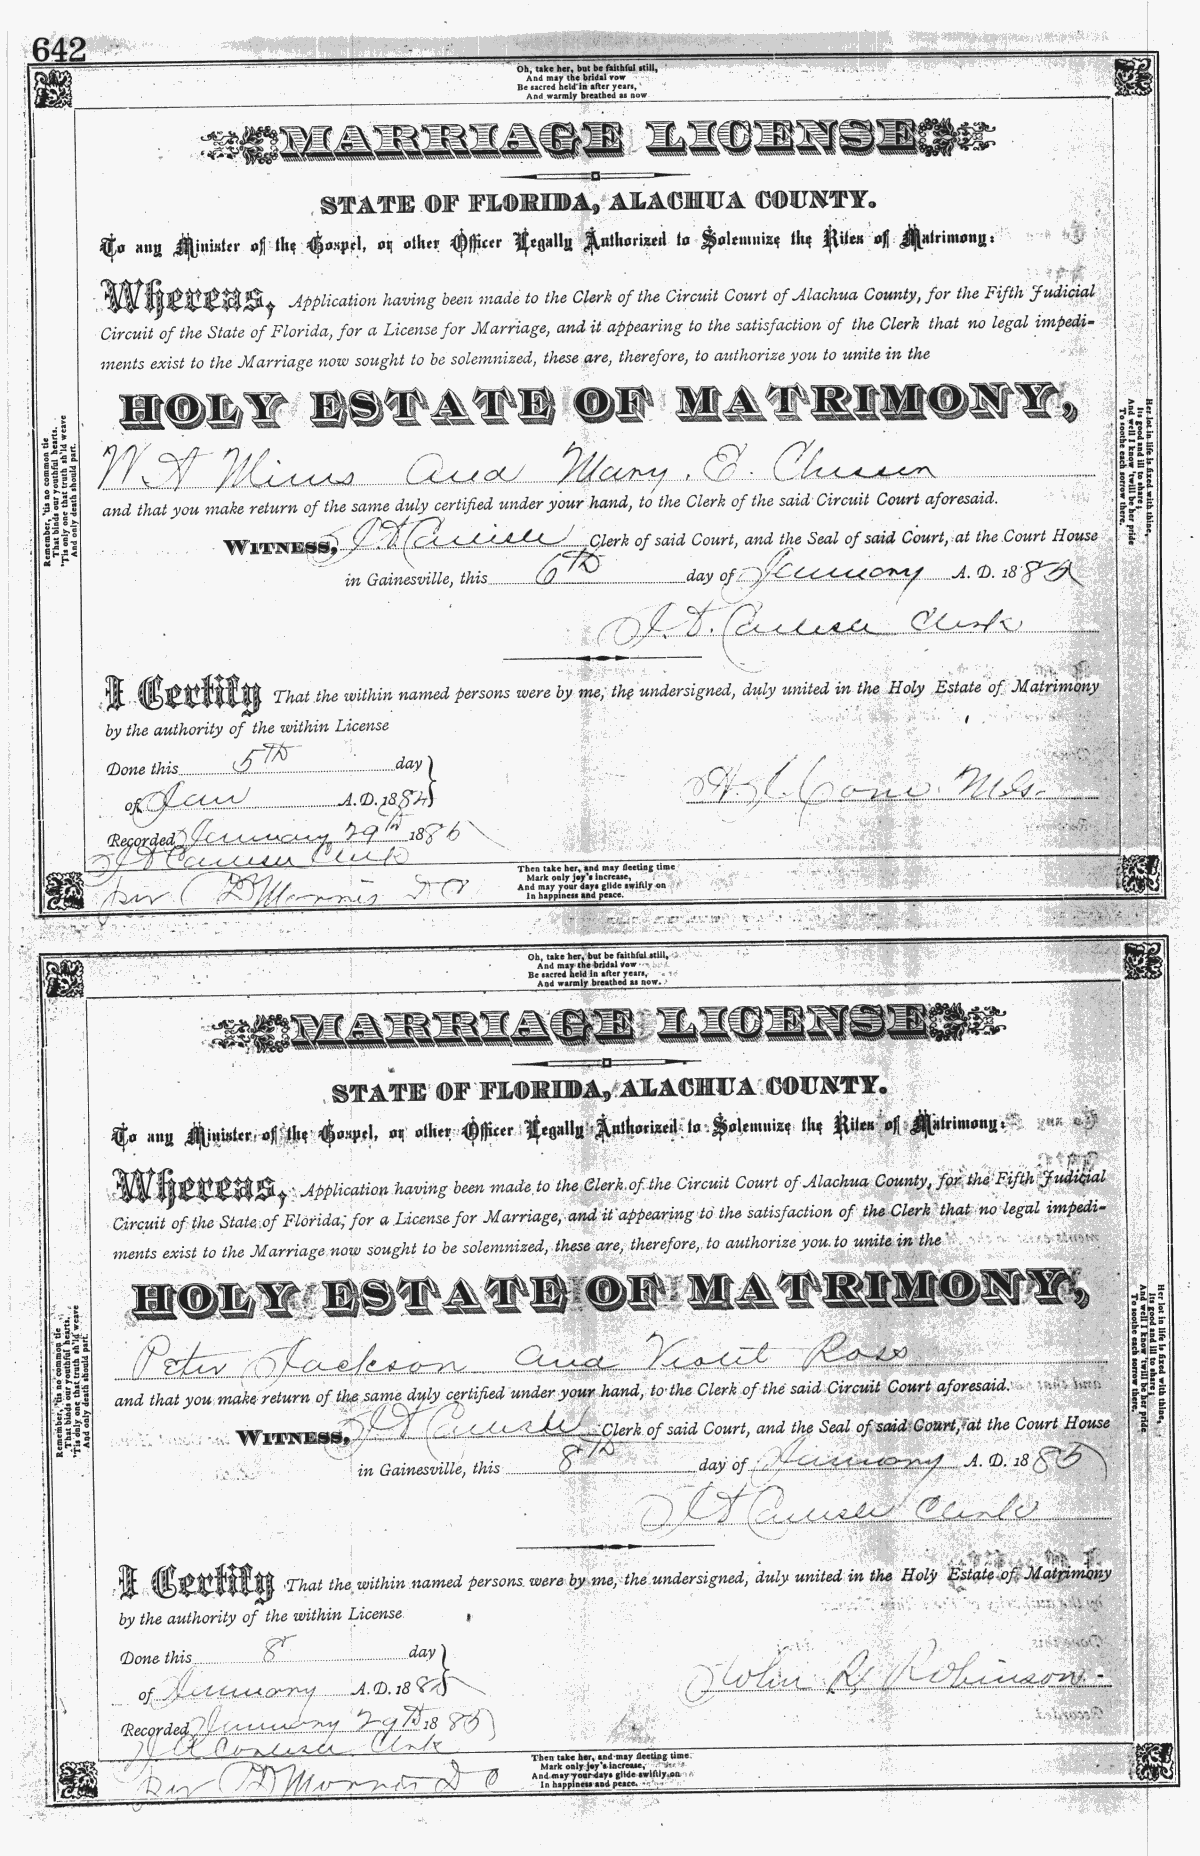 642
Oh, take her, but be faithful still,
And may the bridal vow
Be sacred held in after years,
And warmly breathed as now
MARRIAGE LICENSE
STATE OF FLORIDA, ALACHUA COUNTY.
To any Minister of the Gospel, or other Officer Legally Authorized to Solemnize the Rites of Matrimony:
Whereas, Application having been made to the Clerk of the Circuit Court of Alachua County, for the Fifth Judicial
Circuit of the State of Florida, for a License for Marriage, and it appearing to the satisfaction of the Clerk that no legal impedi-
ments exist to the Marriage now sought to be solemnized, these are, therefore, to authorize you to unite in the
HOLY ESTATE OF MATRIMONY,
W A Mims and Mary. E
and that you make return of the same duly certified under your hand, to the Clerk of the said Circuit Court aforesaid.
WITNESS, J. A Carlisle Clerk of said Court, and the Seal of said Court, at the Court House
in Gainesville, this 6TH day of January A. D. 1885
J. A. Carlisle Clerk
I Certify That the within named persons were by me, the undersigned, duly united in the Holy Estate of Matrimony
by the authority of the within License
Done this 5TH day
of Jan A. D. 18
Recorded January 29th 1885
J A Carlisle Clerk
per D Morris D C
Remember, 'tis no common tie
That binds our youthful hearts,
'Tis only one that truth sh'ld weave
And only death should part.
Her lot in life is fixed with thine,
Its good and ill to share;
And well I know 'twill be her pride
To soothe each sorrow there.
Then take her, and may fleeting time
Mark only joy's increase,
And may your days glide swiftly on
In happiness and peace.
Oh, take her, but be faithful still,
And may the bridal vow
Be sacred held in after years,
And warmly breathed as now.
MARRIAGE LICENSE
STATE OF FLORIDA, ALACHUA COUNTY.
To any Minister of the Gospel, or other Officer Legally Authorized to Solemnize the Rites of Matrimony:
Whereas, Application having been made to the Clerk of the Circuit Court of Alachua County, for the Fifth Judicial
Circuit of the State of Florida, for a License for Marriage, and it appearing to the satisfaction of the Clerk that no legal impedi-
ments exist to the Marriage now sought to be solemnized, these are, therefore, to authorize you to unite in the
HOLY ESTATE OF MATRIMONY,
Peter Jackson and Violet Ross
and that you make return of the same duly certified under your hand, to the Clerk of the said Circuit Court aforesaid.
WITNESS, J A Carlisle Clerk of said Court, and the Seal of said Court, at the Court House
in Gainesville, this 8TH day of January A. D. 1885
J A Carlisle Clerk
I Certify That the within named persons were by me, the undersigned, duly united in the Holy Estate of Matrimony
by the authority of the within License
Done this 8 day
of January A. D. 1885
John R Robinson
Recorded January 29Th 1885
J A Carlisle Clerk
per D Morris D C
Remember, 'tis no common tie
That binds our youthful hearts,
'Tis only one that truth sh'ld weave
And only death should part.
Her lot in life is fixed with thine,
Its good and ill to share;
And well I know 'twill be her pride
To soothe each sorrow there.
Then take her, and may fleeting time
Mark only joy's increase,
And may your days glide swiftly on
In happiness and peace.